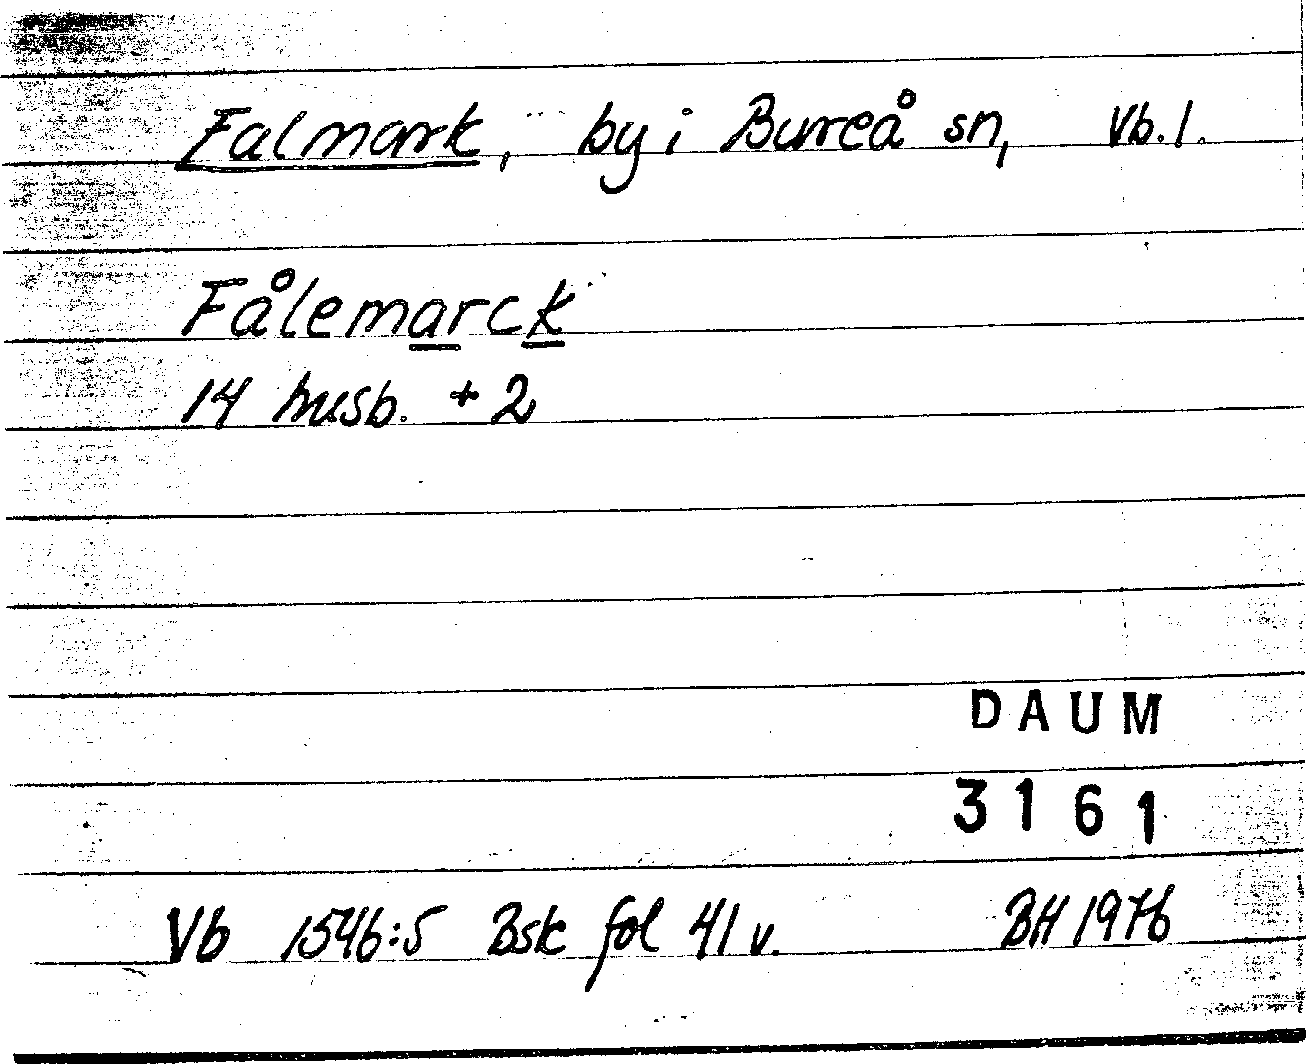 Falmark, by i Bureå sn, Vb. l.
Fålemarck
14 husb. + 2
DAUM
3161
Vb 1546:5 Bsk fol 41 v. BH 1976